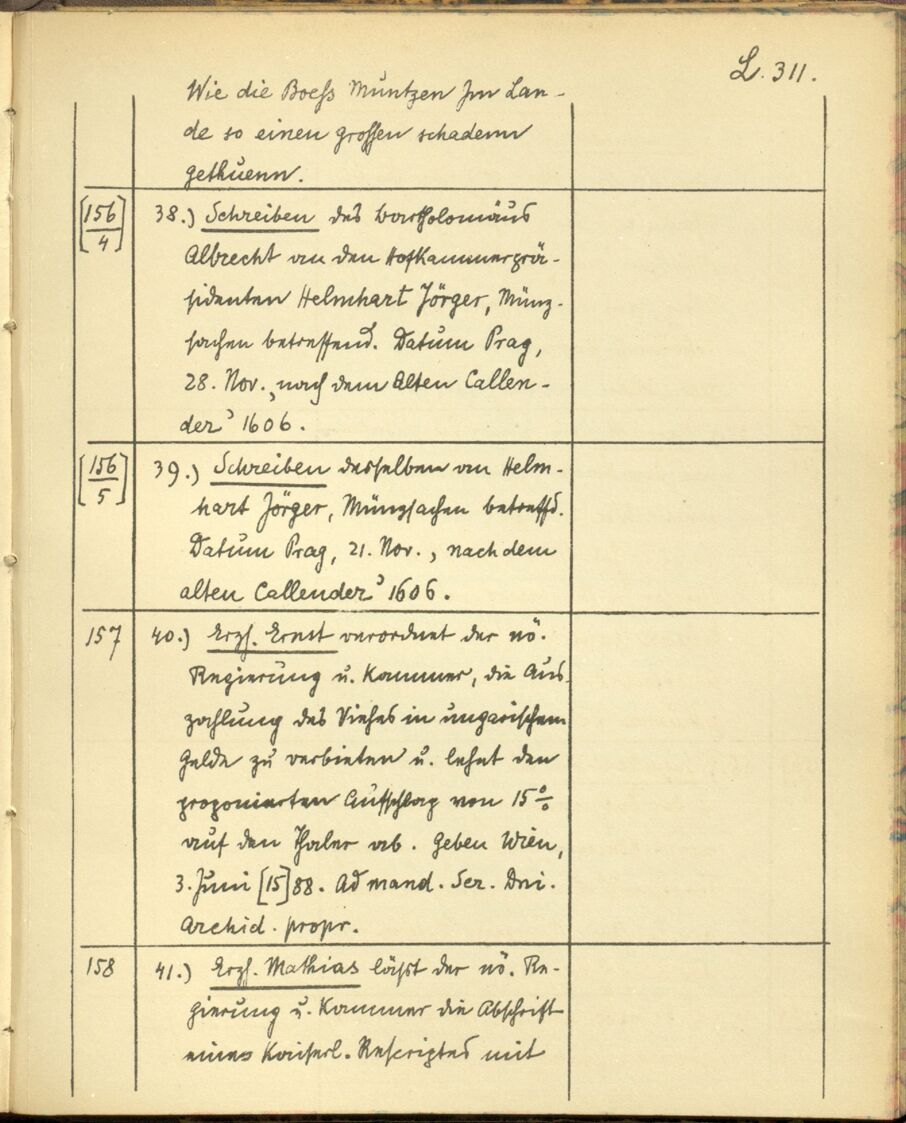 L. 311.
Wie die Boess Müntzen Jm Lan-
de so einen grossen schadenn
gethuenn.
[156/4] 38.) Schreiben des Bartholomäus
Albrecht an den Hofkammerprä-
sidenten Helmhart Jörger, Münz-
sachen betreffend. Datum Prag,
28. Nov. „nach dem Alten Callen-
der" 1606.
[156/5] 39.) Schreiben desselben an Helm-
hart Jörger, Münzsachen betreffd.
Datum Prag, 21. Nov. „nach dem
alten Callender" 1606.
157 40.) Erzh. Ernst verordnet der nö.
Regierung u. Kammer, die Aus-
zahlung des Viehes in ungarischem
Gelde zu verbieten u. lehnt den
proponierten Aufschlag von 15%
auf den Thaler ab. Geben Wien,
3. Juni [15]88. Ad mand. Ser. Dni.
Archid. propr.
158 41.) Erzh. Mathias läßt der nö. Re-
gierung u. Kammer die Abschrift
eines Kaiserl. Rescriptes mit